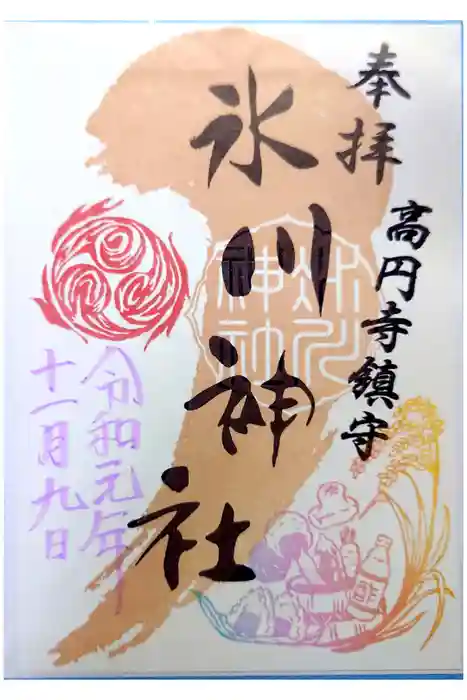 奉拝
高円寺鎮守
氷川神社
令和元年
十一月九日